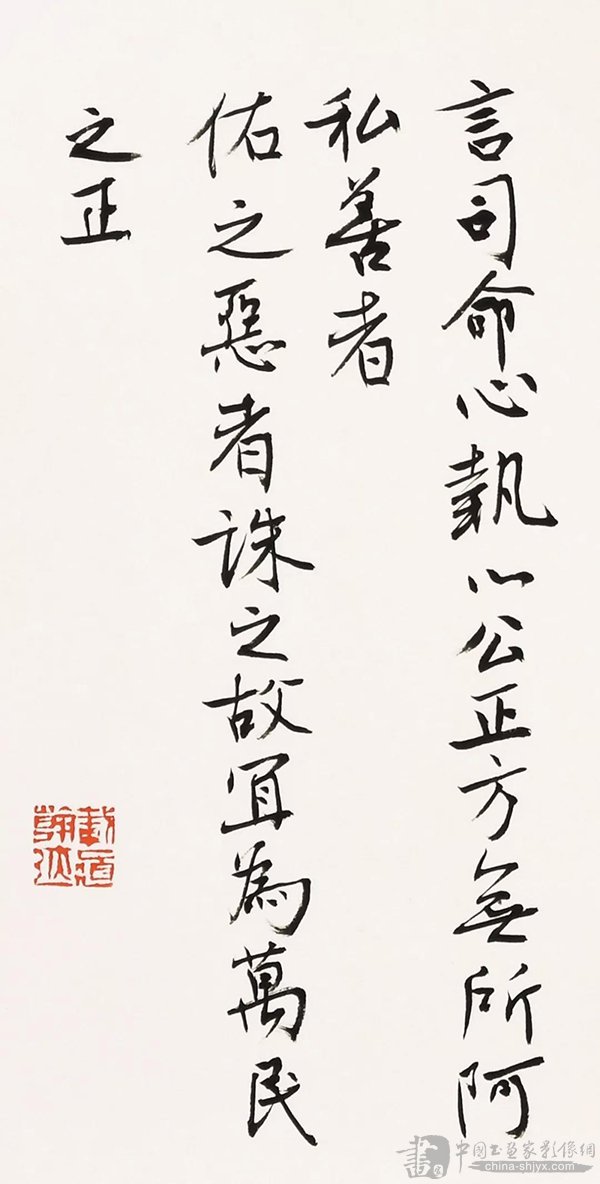 言司命心執心公正方無所阿
私善者
佑之惡者誅之故宜為萬民
之正
中国书画家影像網
china-shjyx.com